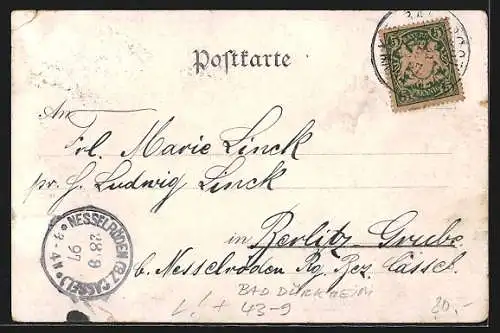 Postkarte
5 BAYERN 5
PFENNIG
An
Frl. Marie Linck
pr. H. Ludwig Linck
in Berlitz-Grube
b. Nesselröden Rg. Bez. Cassel.
NESSELRÖDEN (BZ. CASSEL)
28 9
97
3-4N
BAD DÜRKHEIM
L! + 43-9
20.-